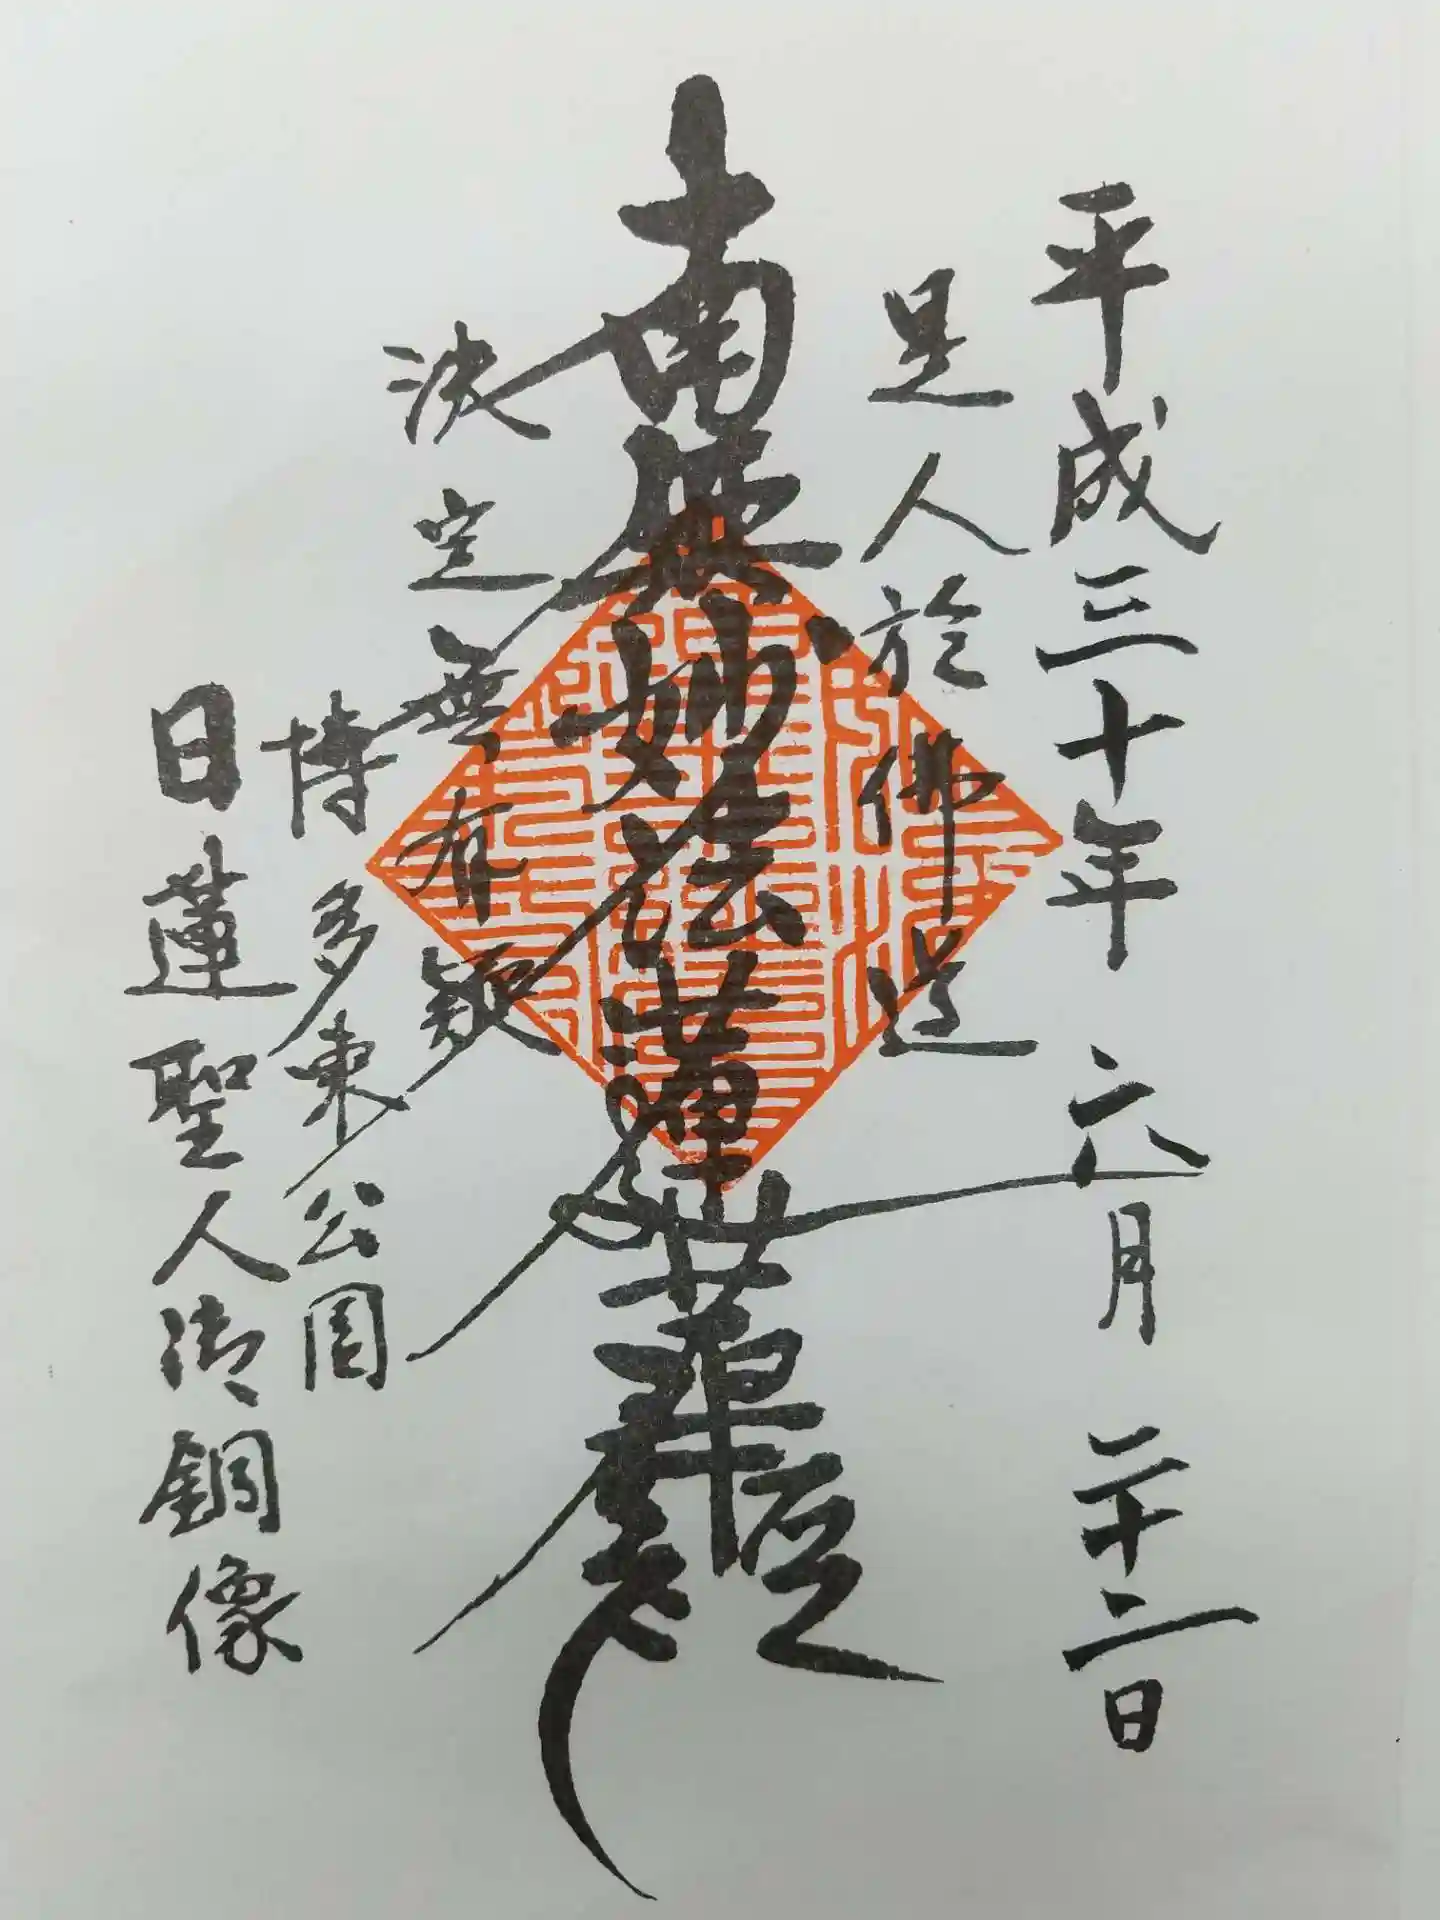 平成三十年 六月 二十二日
是人於佛道
南無妙法蓮華経
決定無有疑
博多東公園
日蓮聖人御銅像